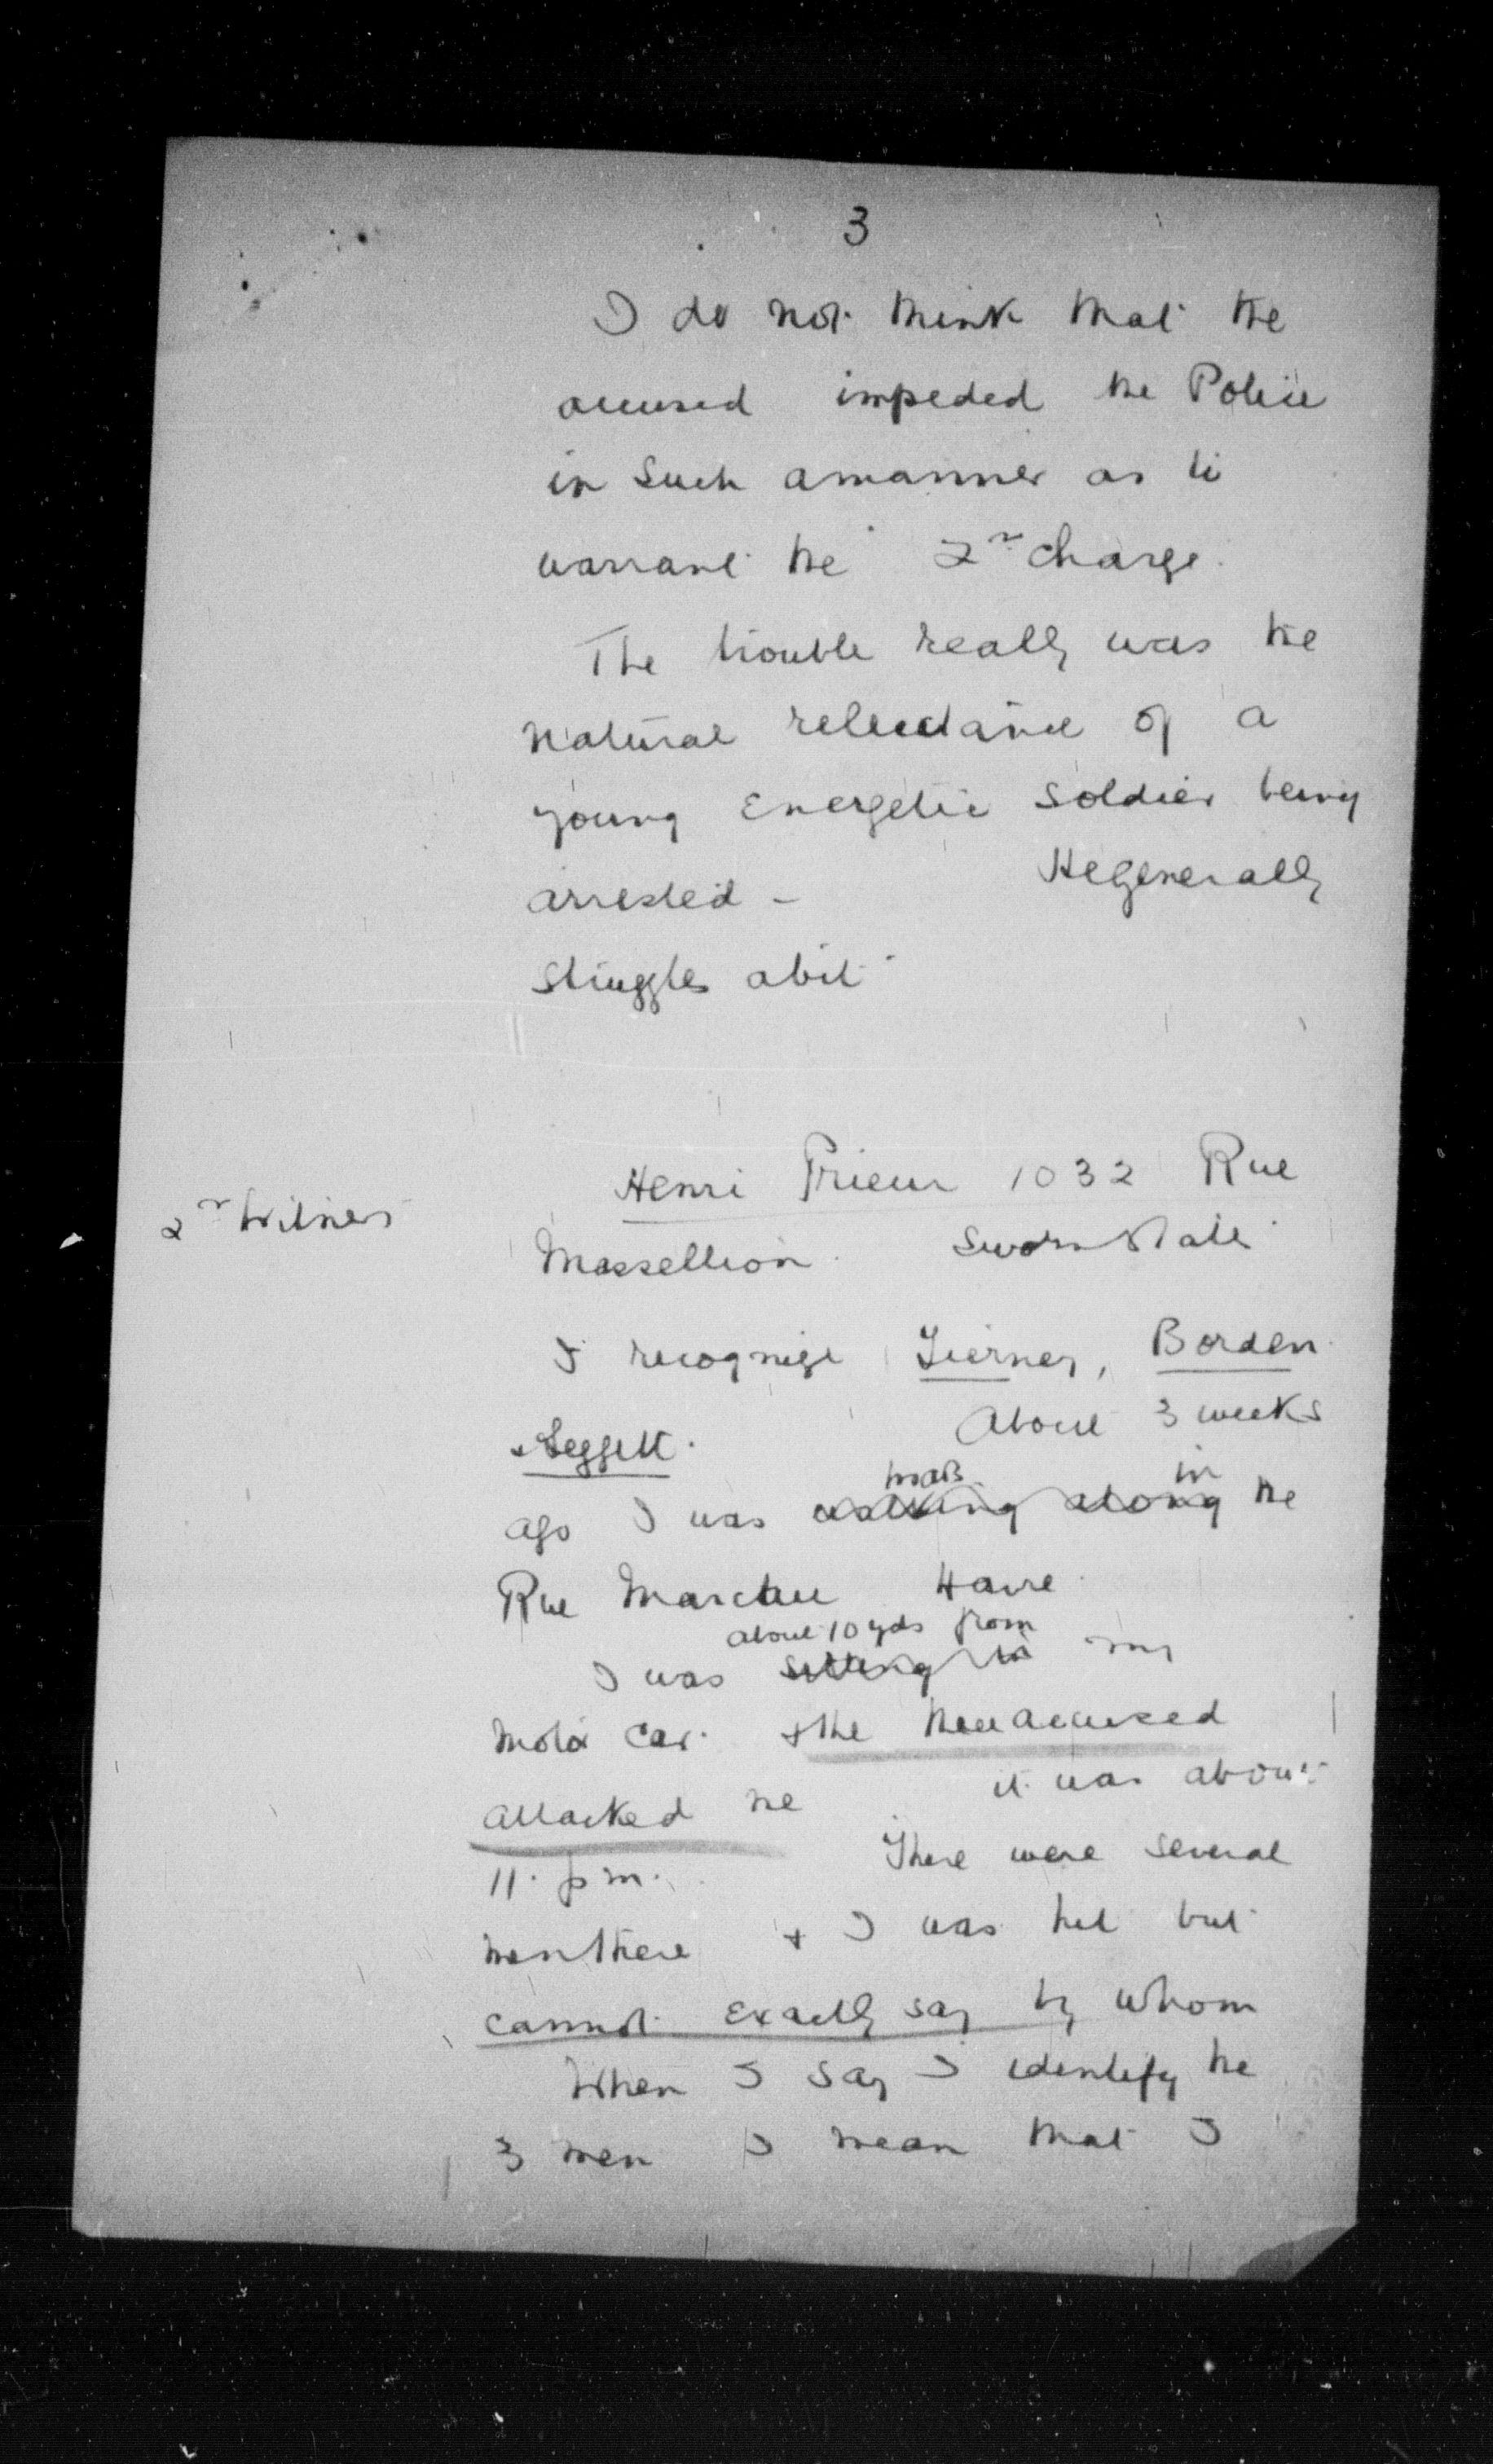 3
I do not think that the
accused impeded the Police
in such a manner as to
warrant the 2nd charge.
The trouble really was the
natural reluctance of a
young energetic soldier being
arrested - He generally
struggles a bit
2nd Witness
Henri Prieur 1032 Rue
Massellion. Sworn States
I recognize Tierney, Borden
& Leggett. About 3 weeks
in
ago I was walking along the
Rue Marceau Havre.
about 10 yds from
I was sitting in my
motor car. & the three accused
attacked me it was about
11. pm. There were several
men there & I was hit but
cannot exactly say by whom
When I say I identify the
3 men I mean that I